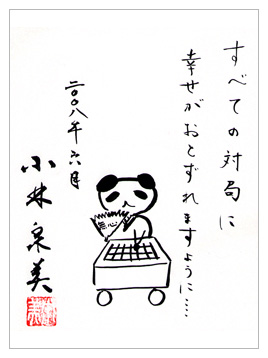 すべての対局に
幸せがおとずれますように…
二〇〇八年六月
小林泉美